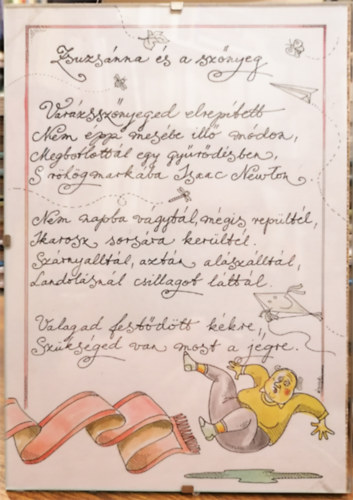 Zsuzsánna és a szőnyeg
Varázsszőnyeged elrepített
Nem épp mesébe illő módon,
Megbotlottál egy gyűrődésben,
S röhögmarkába Isaac Newton.
Nem napba vágytál, mégis repültél,
Ikarosz sorsára kerültél.
Szárnyalltál, aztán alászálltál,
Landolásnál csillagot láttál.
Valagad festődött kékre,
Szükséged van most a jégre.